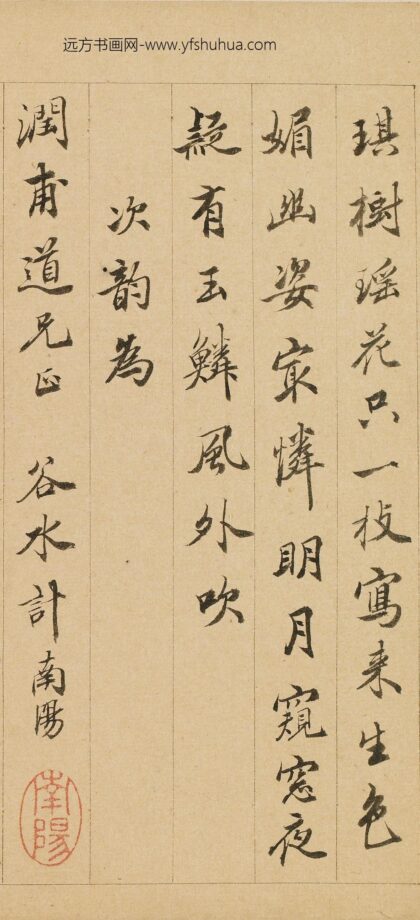 远方书画网-www.yfshuhua.com
琪樹瑶花只一枝寫来生色
媚幽姿㝡憐明月窺窓夜
疑有玉鱗風外吹
次韵為
潤甫道兄正 谷水計南陽
南陽